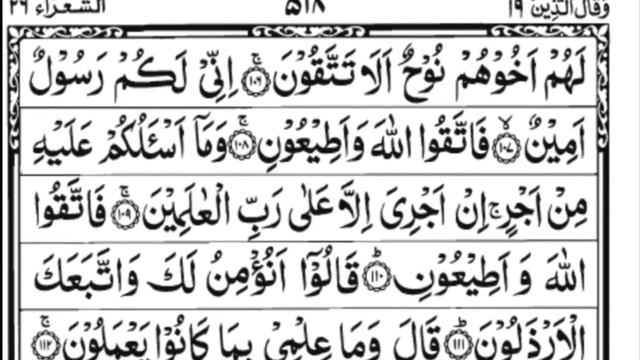 وقال الذين ١٩ ٥١٨ الشعراء ٢٦
لَهُمْ اَخُوْهُمْ نُوْحٌ اَلَا تَتَّقُوْنَ ۚ﴿١٠٦﴾ اِنِّىْ لَكُمْ رَسُوْلٌ
اَمِيْنٌ ۙ﴿١٠٧﴾ فَاتَّقُوا اللّٰهَ وَاَطِيْعُوْنِ ۚ﴿١٠٨﴾ وَمَاۤ اَسْـَٔلُكُمْ عَلَيْهِ
مِنْ اَجْرٍ ۚ اِنْ اَجْرِىَ اِلَّا عَلٰى رَبِّ الْعٰلَمِيْنَ ۚ﴿١٠٩﴾ فَاتَّقُوا
اللّٰهَ وَ اَطِيْعُوْنِ ؕ﴿١١٠﴾ قَالُوْۤا اَنُؤْمِنُ لَكَ وَاتَّبَعَكَ
الْاَرْذَلُوْنَ ؕ﴿١١١﴾ قَالَ وَمَا عِلْمِىْ بِمَا كَانُوْا يَعْمَلُوْنَ ۚ﴿١١٢﴾